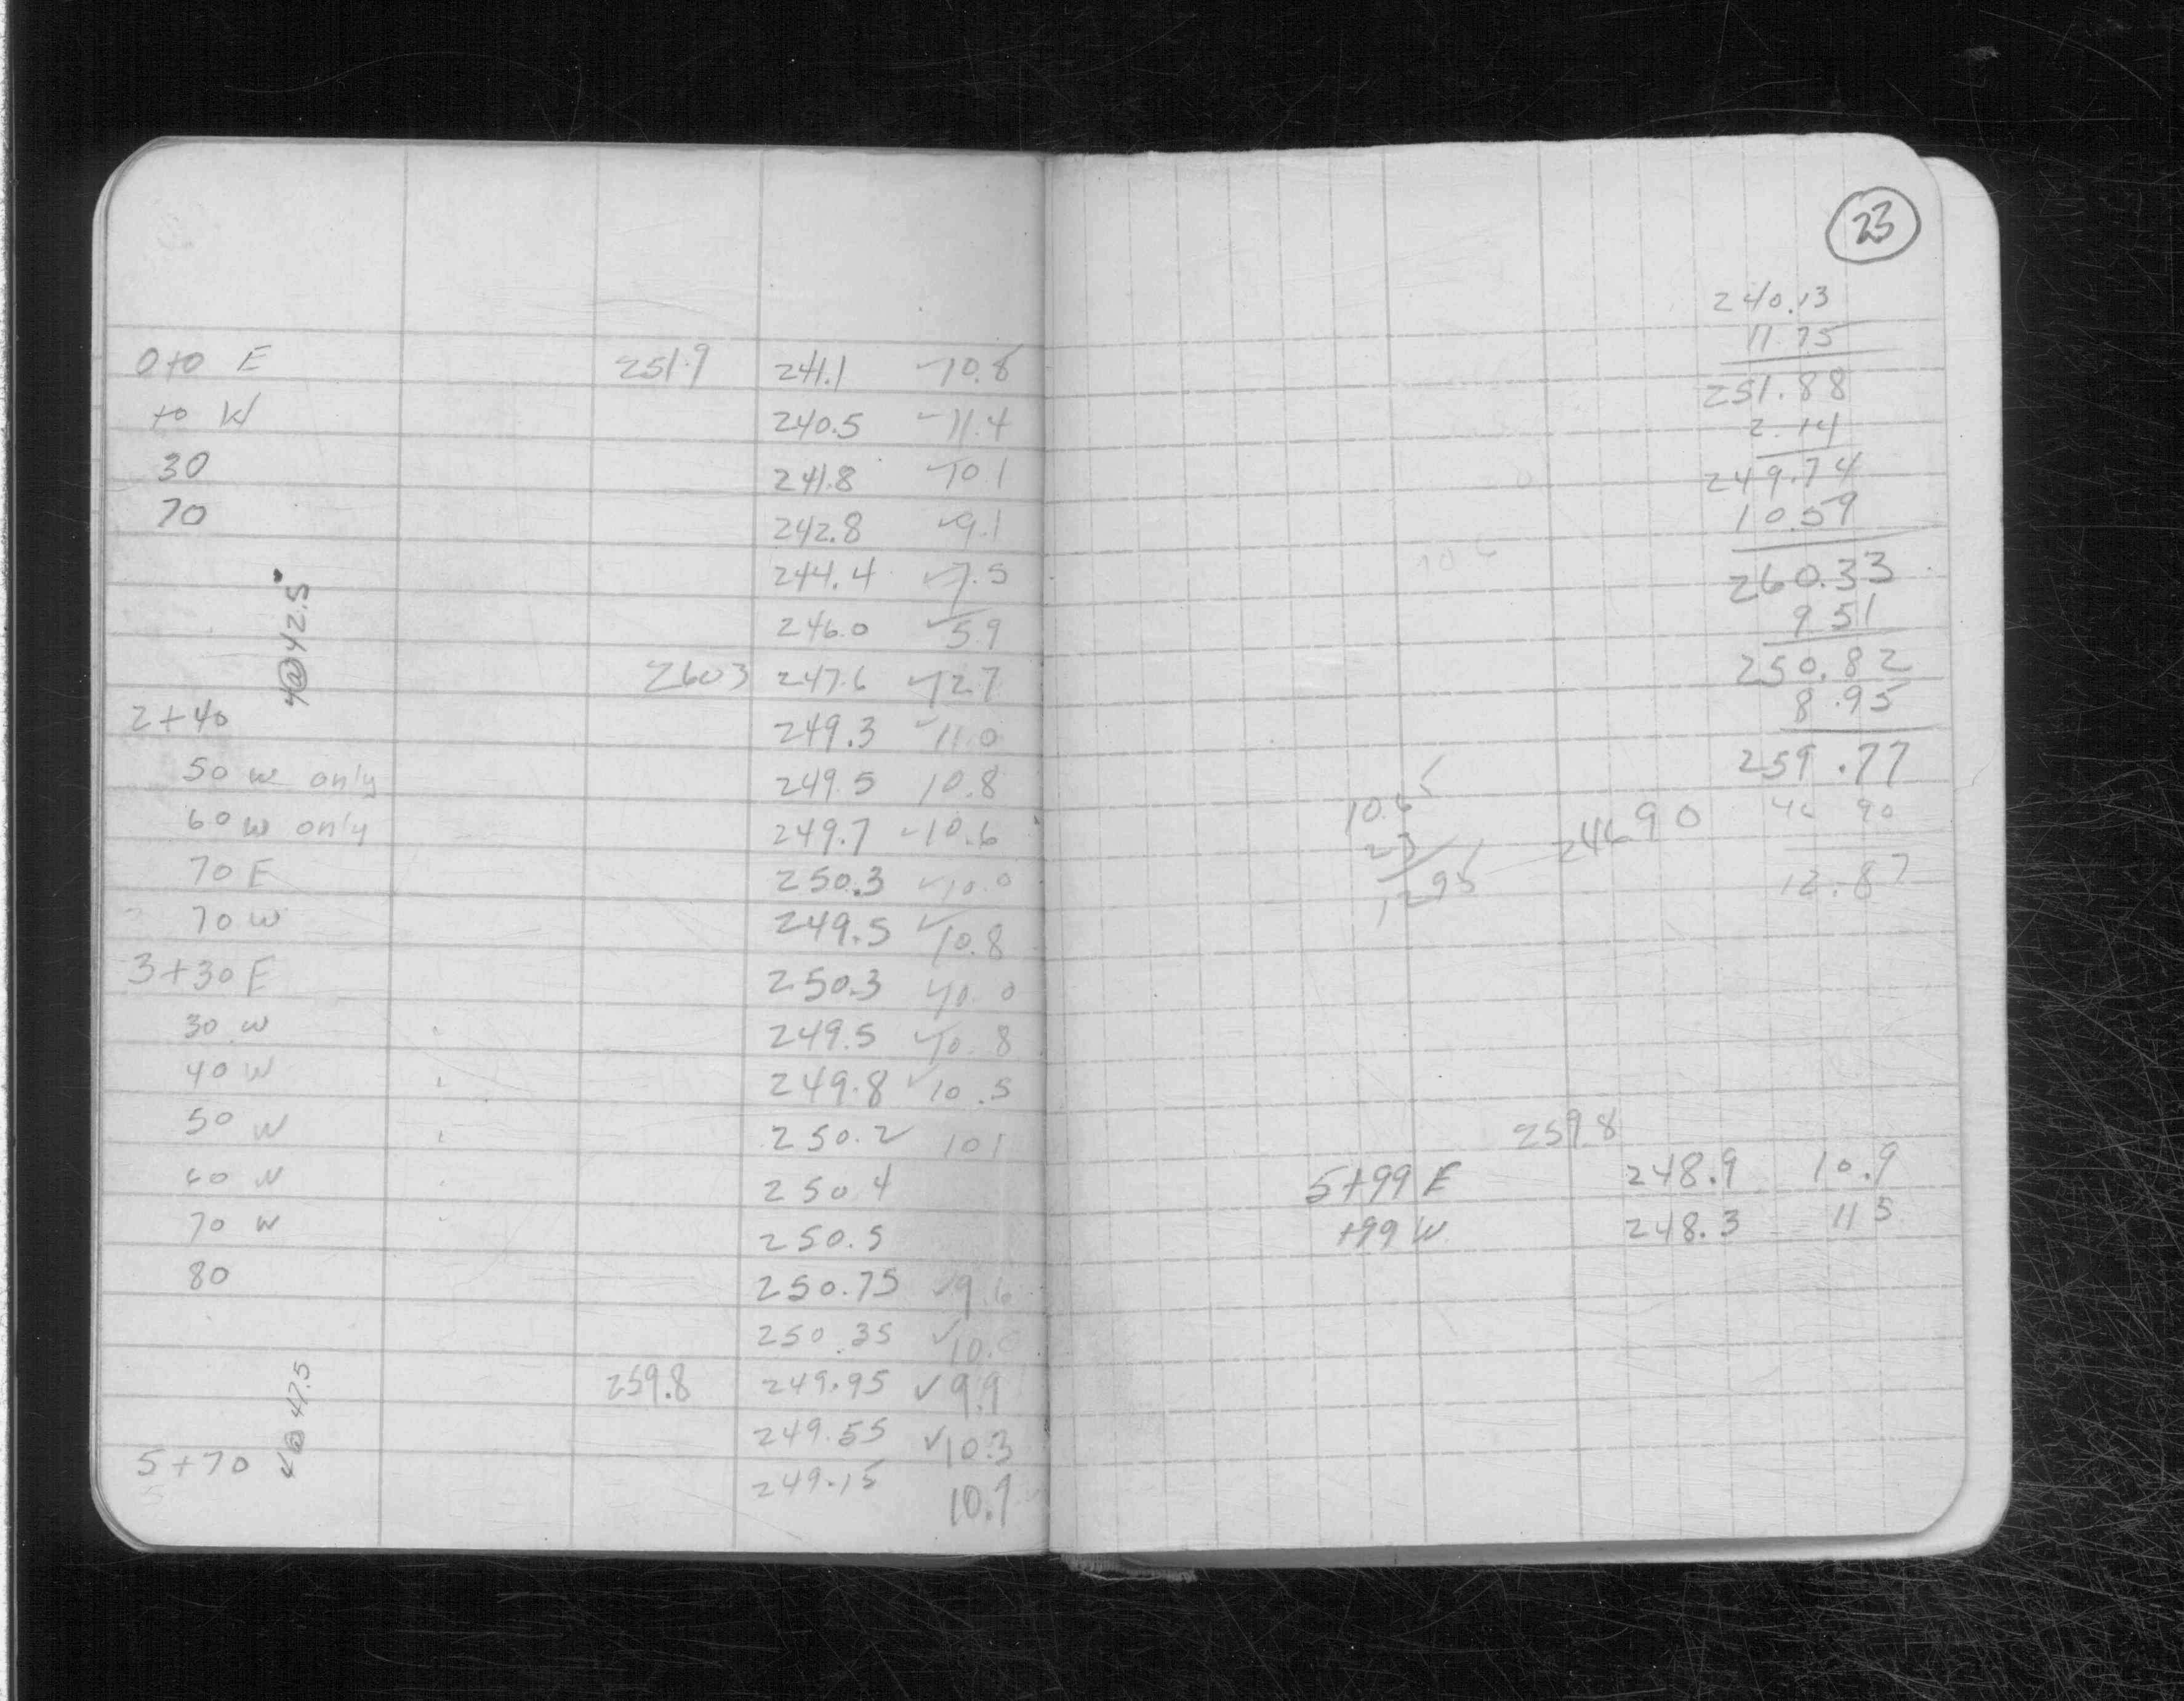 0+0 E 251.9 241.1 ✓10.8
+0 W 240.5 ✓11.4
30 241.8 ✓10 1
70 242.8 ✓9.1
244.4 ✓7.5
246.0 ✓5.9
4@42.5
2603 247.6 ✓12.7
2+40 249.3 ✓11.0
50 w only 249.5 10.8
60 w only 249.7 ✓10.6
70 E 250.3 ✓10.0
70 w 249.5 ✓10.8
3+30 E 250.3 ✓10.0
30 w 249.5 ✓10.8
40 W 249.8 ✓10.5
50 w 250.2 ✓ 10 1
60 w 250 4
70 w 250.5
80 250.75 ✓9.6
250.35 ✓10.
259.8 249.95 ✓9.9
249.55 ✓10.3
@ 47.5
5+70 249.15 10.9
23
240.13
11.75
251.88
2.14
249.74
10.59
260.33
9 51
250.82
8.95
259.77
10.6 24690 46 90
12.87
1295
259.8
5+99 E 248.9 10.9
+99 W 248.3 11 5